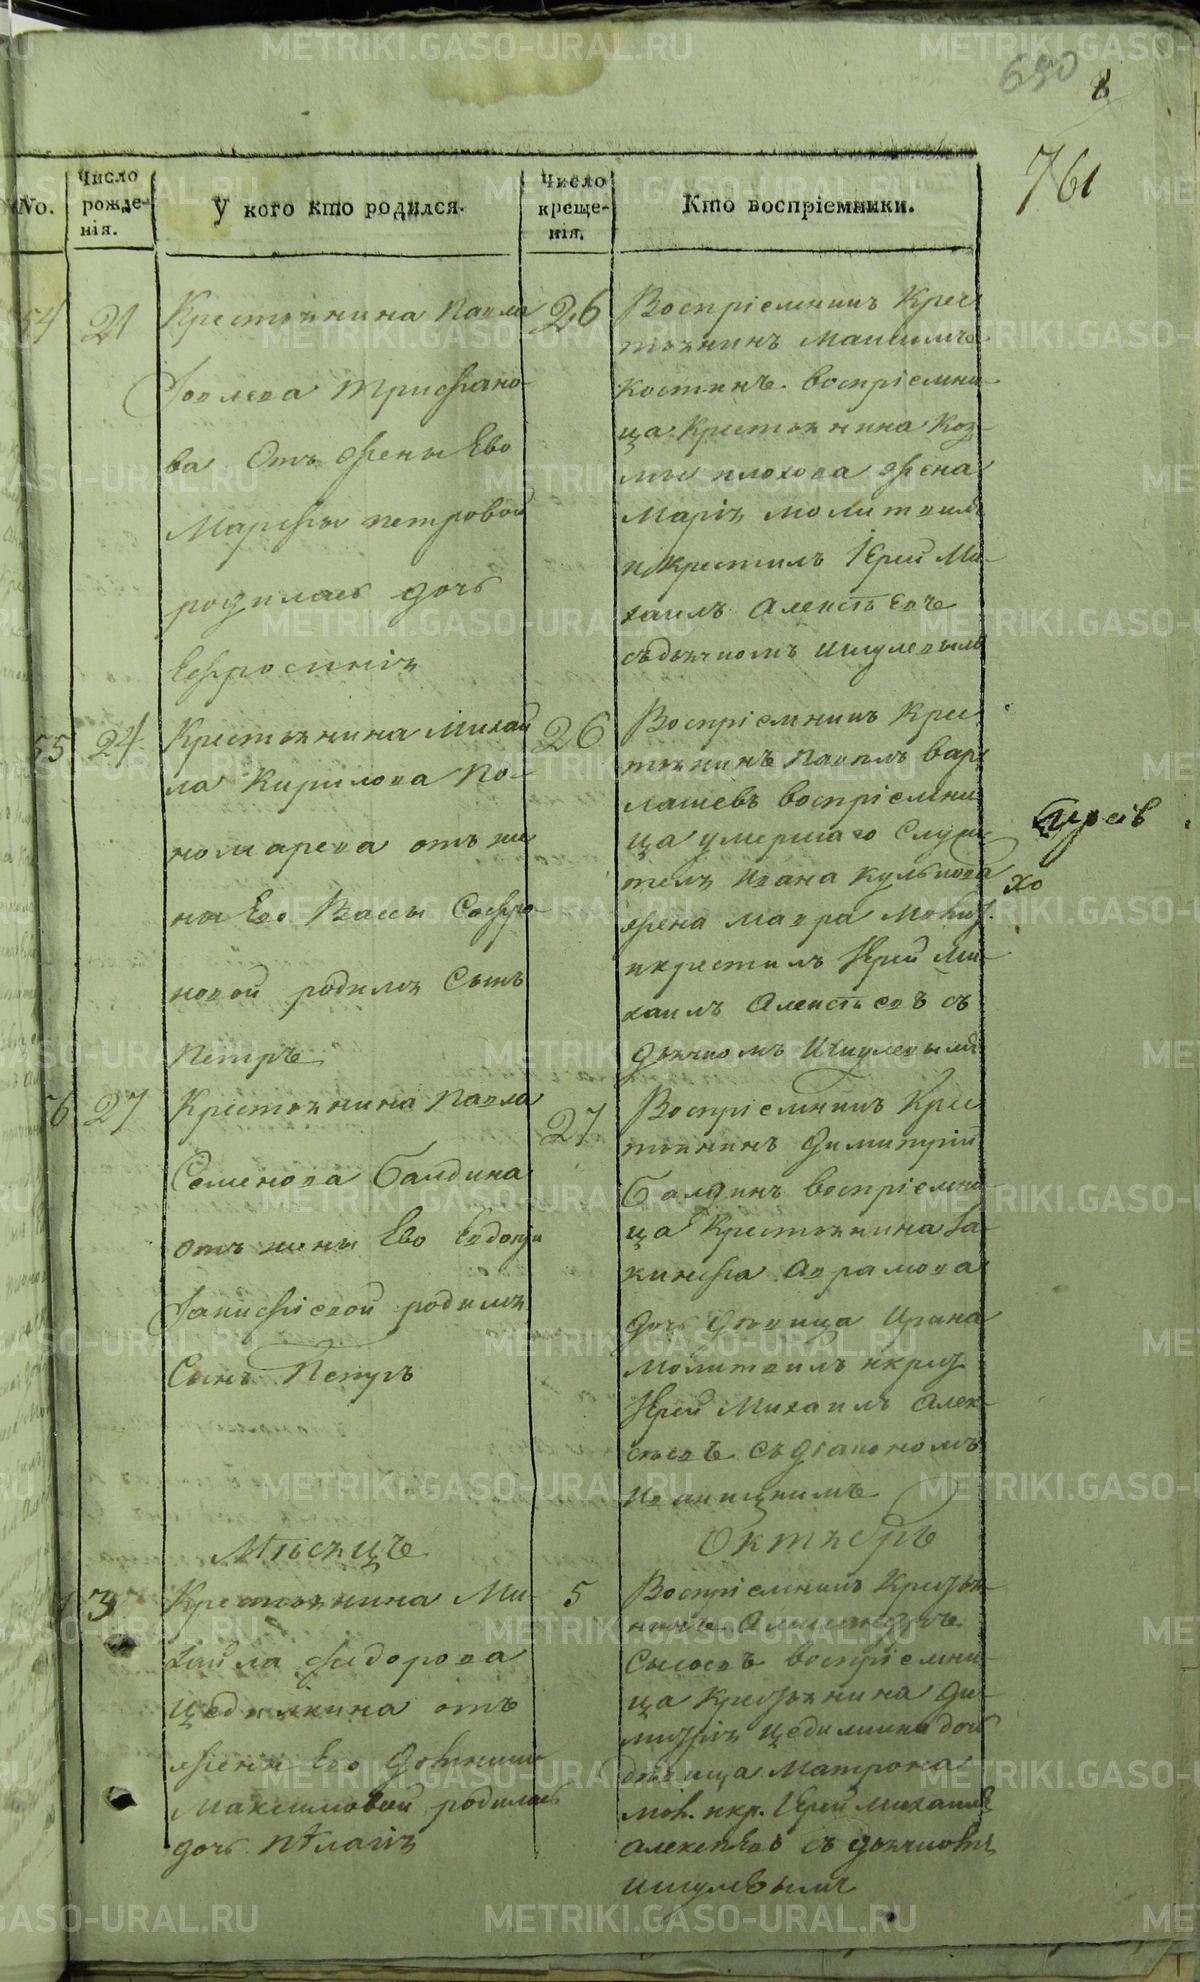 650
8
761
No.
Число рожденія.
У кого кто родился.
Число крещенія.
Кто воспріемники.
54
21
Крестьянина Павла
Іовлева Трифано-
ва Отъ жены Ево
Марфы петровой
родилась дочь
Ефросинія
26
Воспріемникъ Крес
тьянинъ Максимъ
Костинъ воспріемни-
ца Крестьянина Коз-
мы плохова жена
Марія молитвилъ
и крестилъ Іерей Ми-
хаилъ Алексѣевъ
съ дьячкомъ
55
24
Крестьянина Михай
ла Кирилова По-
номарева отъ же
ны Ево Вассы Софро-
новой родился Сынъ
Петръ
26
Воспріемникъ Крес
тьянинъ Павелъ Вар
лашевъ воспріемни
ца умершаго Служи
теля Ивана
жена Мавра
и крестилъ Іерей Ми-
хаилъ Алексѣевъ съ
дьячкомъ
56
27
Крестьянина Павла
Семенова Балдина
отъ жены Ево Евдокіи
родился
Сынъ Петръ
27
Воспріемникъ Крес
тьянинъ Димитрій
Балдинъ воспріемни-
ца Крестьянина Іа-
кинфа Аврамова
дочь дѣвица Ирина
молитвилъ и крест
Іерей Михаилъ Алек-
сѣевъ съ діакономъ
Иваницкимъ
Мѣсяцъ
Октябрь
3
Крестьянина Ми-
хайла Федорова
Цедилкина отъ
жены Ево
Максимовой родилась
дочь Пелагія
5
Воспріемникъ Крестья-
нинъ Александръ
Сысоевъ воспріемни-
ца Крестьянина Ди-
митрія Цедилкина доч
дѣвица Матрона
мол. и кр. Іерей Михаилъ
Алексѣевъ съ дьячкомъ
METRIKI.GASO-URAL.RU